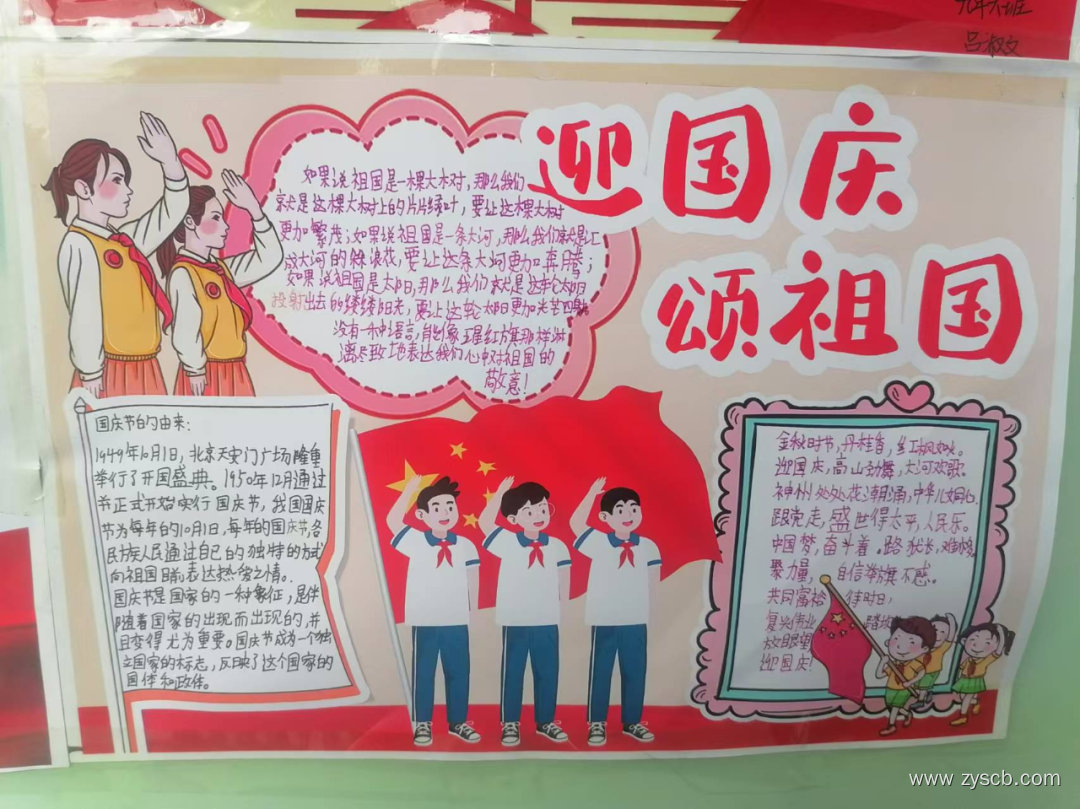 吕淑文
迎国庆
颂祖国
如果说祖国是一棵大树,那么我们
就是这棵大树上的片片绿叶,要让这棵大树
更加繁茂;如果说祖国是一条大河,那么我们就是汇
成大河的朵朵浪花,要让这条大河更加奔腾;
如果说祖国是太阳,那么我们就是这轮太阳
投射出去的缕缕阳光,要让这轮太阳更加光芒四射
没有一种语言,能像五星红旗那样淋
漓尽致地表达我们心中对祖国的
敬意!
国庆节的由来:
1949年10月1日,北京天安门广场隆重
举行了开国盛典。1950年12月通过
并正式开始实行国庆节,我国国庆
节为每年的10月1日,每年的国庆节,各
民族人民通过自己的独特的方式
向祖国目前表达热爱之情。
国庆节是国家的一种象征,是伴
随着国家的出现而出现的,并
且变得尤为重要。国庆节成为一个独
立国家的标志,反映了这个国家的
国体和政体。
金秋时节,丹桂香,红枫
迎国庆,高山劲舞,大河欢歌。
神州处处花潮涌,中华儿女同心
跟党走,盛世得太平,人民乐。
中国梦,奋斗着。路犹长,难
聚力量,自信举旗不惑。
共同富裕 待时日
复兴伟业 踏
放眼望
迎国庆
www.zyscb.com